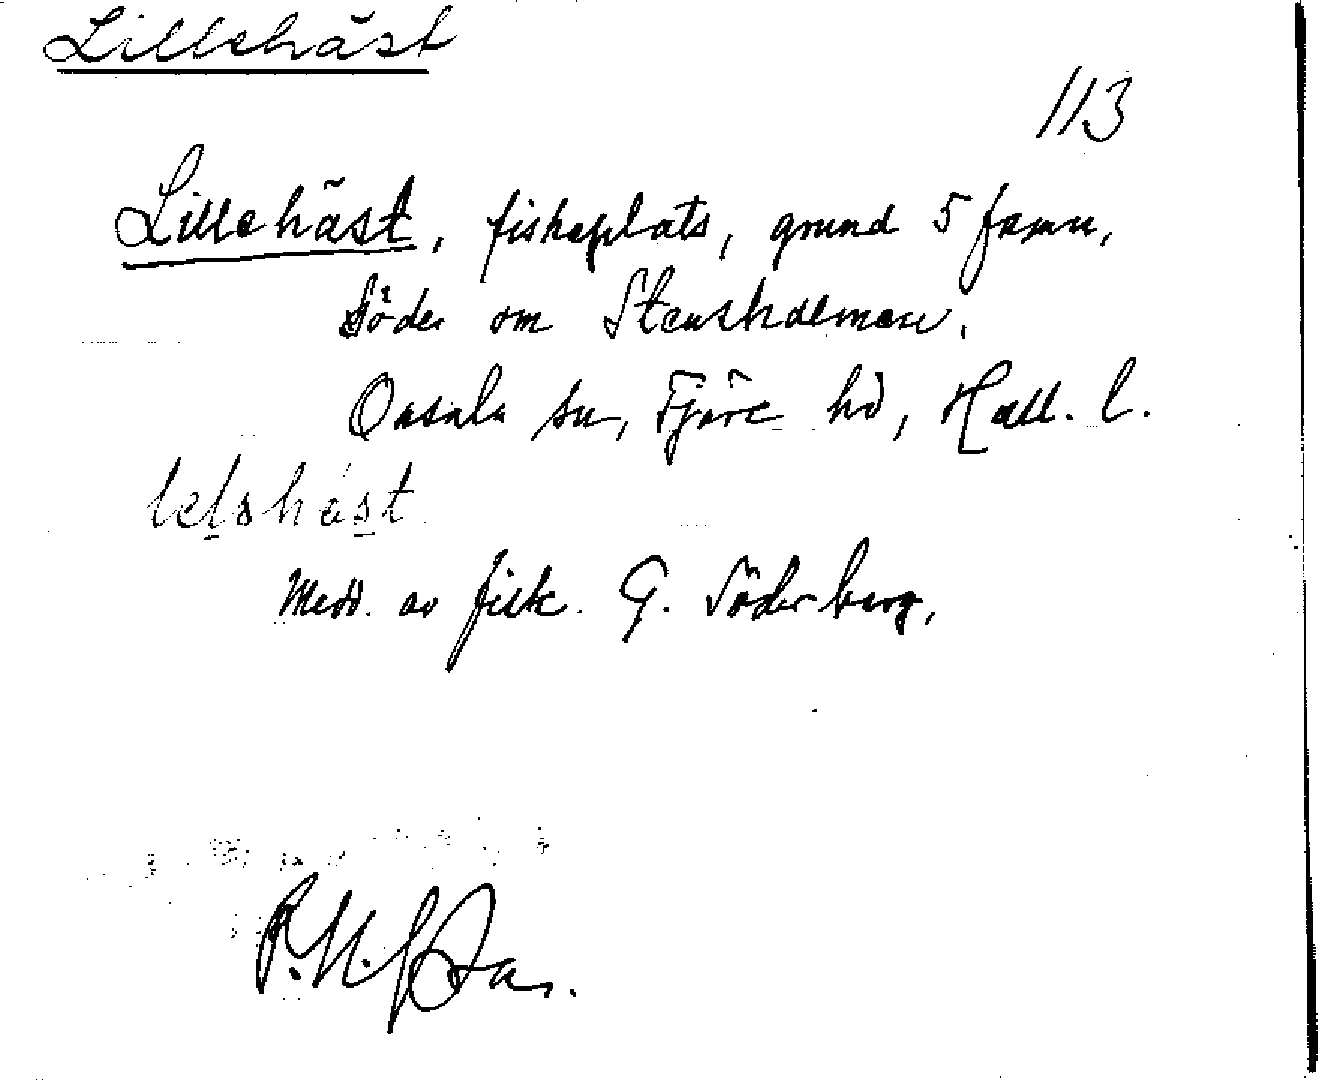 Lillehäst
113
Lillehäst, fiskeplats, grund 5 famn,
Söder om Stensholmen.
Onsala sn, Fjäre hd, Hall. l.
Medd. av fisk. G. Söderberg.